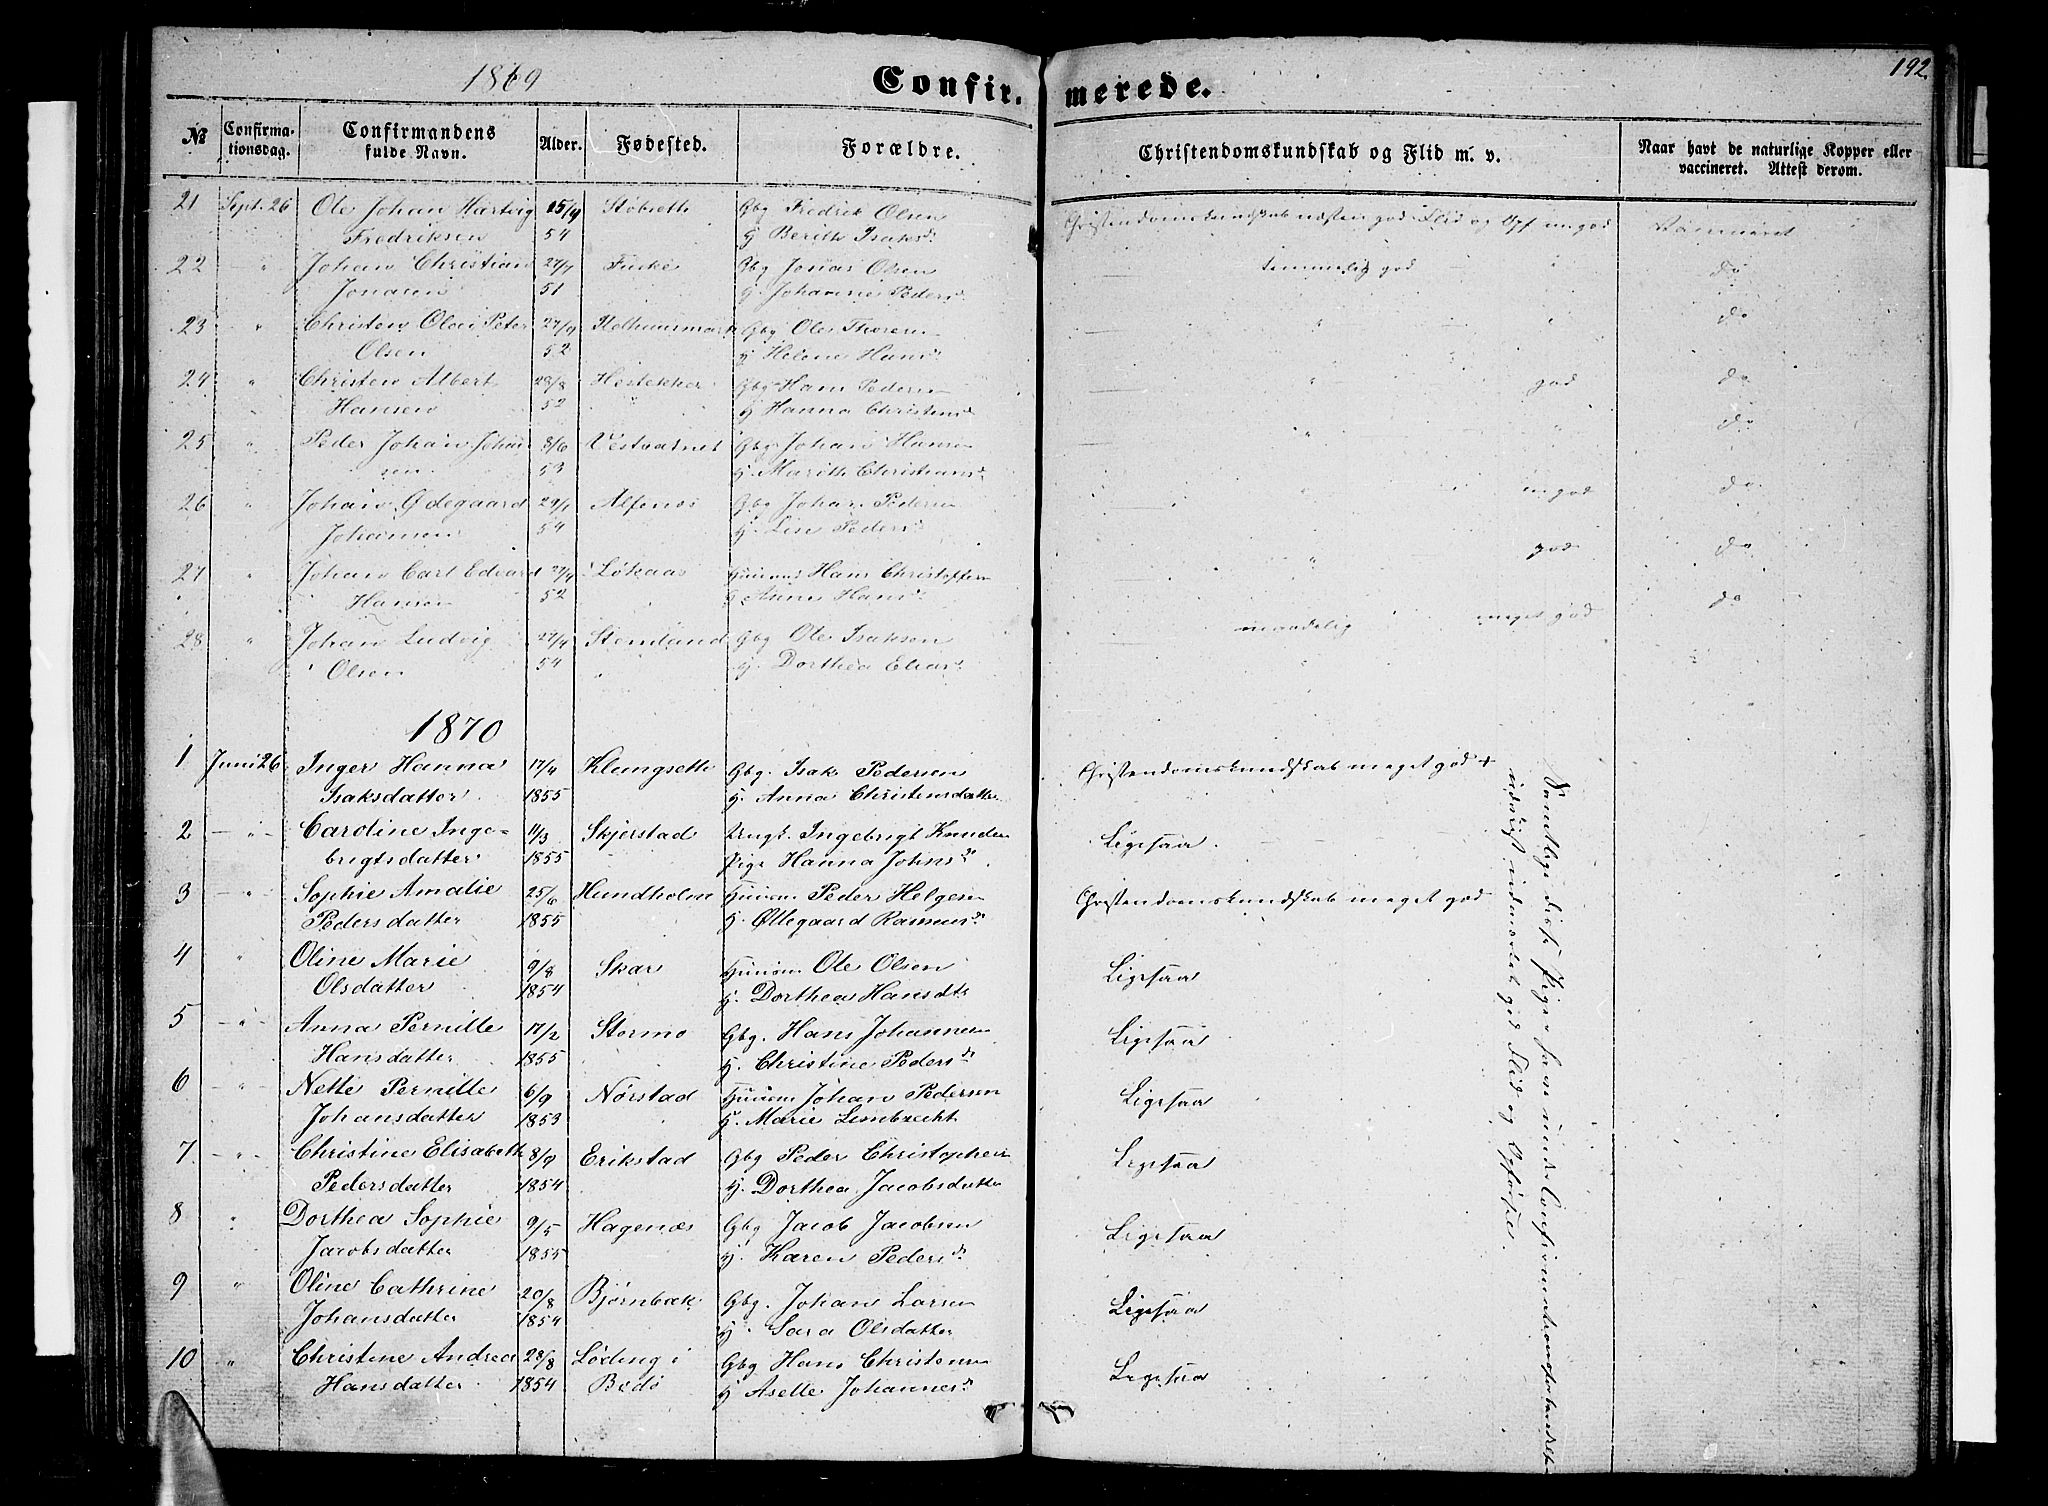 1869
Confirmerede.
192.
№ Confirmationsdag. Confirmandens fulde Navn. Alder. Fødested. Forældre. Christendomskundskab og Flid m. v. Naar havt de naturlige Kopper eller vaccineret. Attest derom.
21 Sept. 26 Ole Johan Hartvig 15/4 Gbg Fredrik Olsen Christendomskundskab næsten god Flid og Opf m god
Fredriksen 54 H Berith Isaksd.
22 " Johan Christian 27/7 Gbg Jonas Olsen temmelig god " do
Jonasen 51 H. Johanne Pedersd.
23 " Christen Olai Peter 27/9 Gbg Ole " " do
Olsen 52 H Helene Hansd.
24 " Christen Albert 28/8 Gbg Hans Pedersen " god do
" Hansen 52 " H Hanna Christensd.
25 " Peder Johan Johan 8/6 Vestvatnet Gbg Johan Hansen " " do
sen 53 H. Marith Christiansd.
26 " Johan Ødegaard 29/1 Alfenes Gbg Johan Pedersen " m god do
Johansen 54 H. Lin Pedersd.
27 " Johan Carl Edvard 27/4 Løkaas Huusm Hans Christoffersen " god do
Hansen 52 H. Anne Hansd.
28 " Johan Ludvig 27/4 Stemland Gbg Ole Isaksen maadelig meget god do
Olsen 54 " H. Dorthea Eliasd.
1870
1 Juni 26 Inger Hanna 17/4 Klungseth Gbg. Isak Pedersen Christendomskundskab meget god +
Isaksdatter 1855 H. Anna Christensdatter
2 - " - Caroline Inge- 11/3 Skjerstad Ungk. Ingebrigt Knudsen Ligesaa.
brigtsdatter 1855 Pige Hanna Johnsd.
3 - " Sophie Amalie 25/6 Hundholm Huusm Peder Helgesen Christendomskundskab meget god
Pedersdatter 1855 H. Øllegaard Rasmusd.
4 " Oline Marie 9/8 Skar Huusm. Ole Olsen Ligesaa
Olsdatter 1854 H. Dorthea Hansdtr
5 - " - Anna Pernille 17/2 Stormo Gbg. Hans Johannesen Ligesaa
Hansdatter 1855 H. Christine Pedersd.
6 - " - Nette Pernille 6/9 Nørstad Huusm Johan Pedersen Ligesaa
Johansdatter 1853 H. Marie Limbrecht
7 - " - Christine Elisabeth 8/9 Erikstad Gbg Peder Christophersen Ligesaa
Pedersdatter 1854 H. Dorthea Jacobsdatter
8 " Dorthea Sophie 9/5 Hagenæs Gbg Jacob Jacobsen Ligesaa
Jacobsdatter 1855 H. Karen Pedersd.
9 " Oline Cathrine 20/8 Bjørnbak Gbg. Johan Larsen Ligesaa
Johansdatter 1854 H. Sara Olsdatter
10 " Christine Andrea 28/8 Løding i Gbg Hans Christensen Ligesaa
Hansdatter 1854 Bodø H Aselle Johannesd.
Samtlige disse Piger have under Confirmationsforberedelsen
udvist udmærket god Flid og Opførsel.